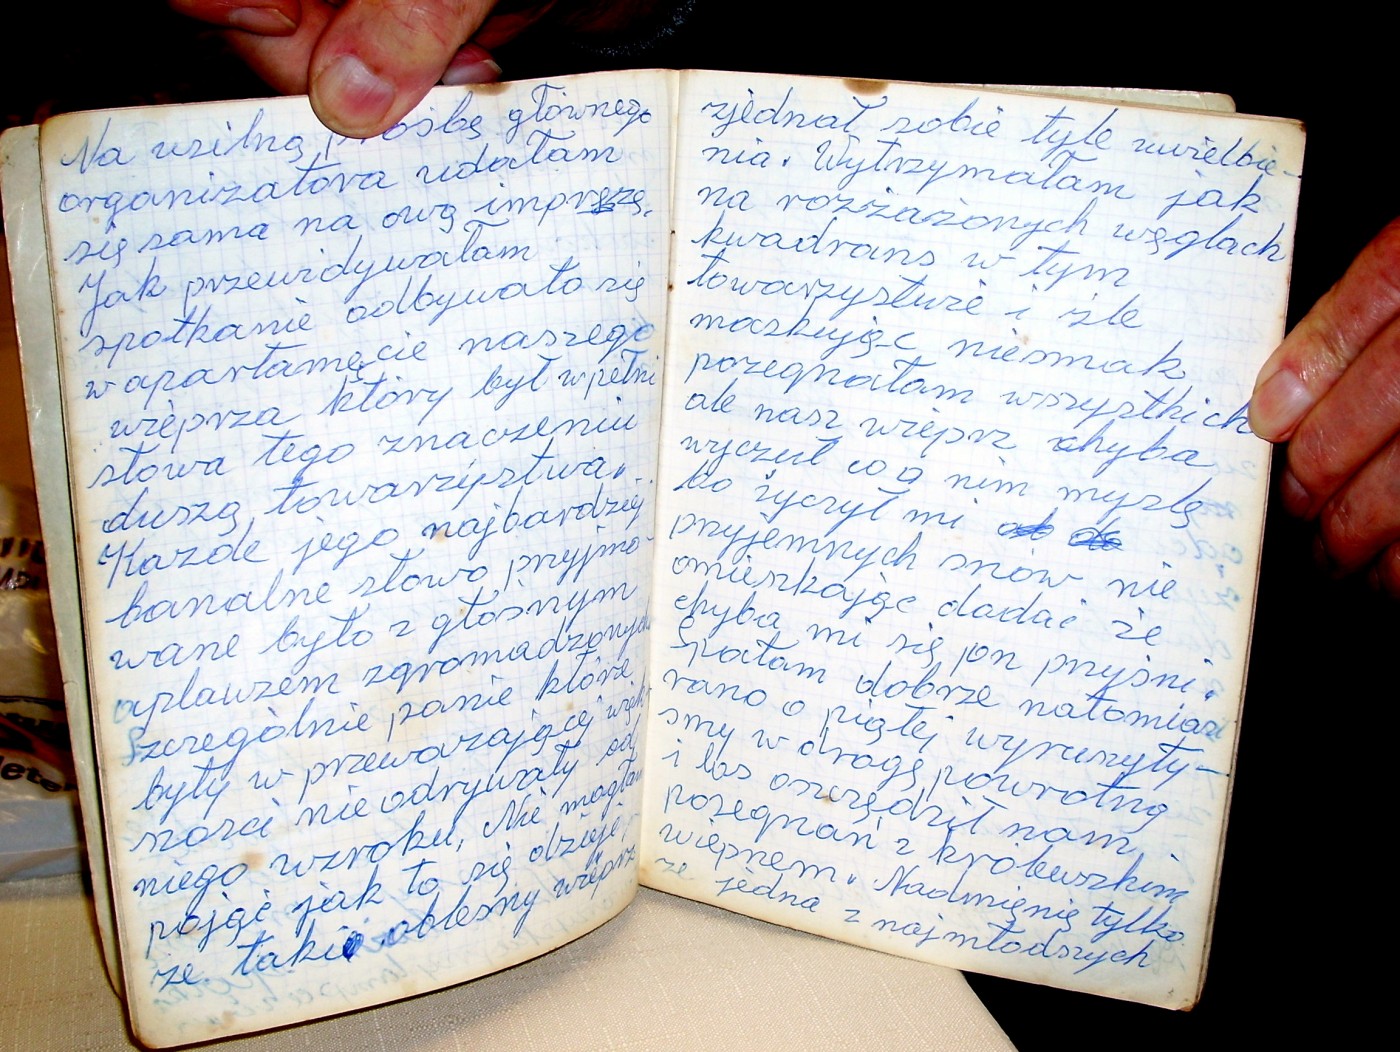 Na usilną prośbę głównego
organizatora udałam
się sama na ową imprezę.
Jak przewidywałam
spotkanie odbywało się
w apartamęcie naszego
wieprza który był w pełni
słowa tego znaczeniu
duszą towarzystwa.
Każde jego najbardziej
banalne słowo przyjmo-
wane było z głośnym
aplauzem zgromadzonych
Szczególnie panie które
były w przeważającej więk-
szości nie odrywały od
niego wzroku. Nie mogłam
pojąć jak to się dzieje
że taki obleśny wieprz
zjednał sobie tyle uwielbie-
nia. Wytrzymałam jak
na rozżażonych węglach
kwadrans w tym
towarzystwie i źle
maskując niesmak
pożegnałam wszystkich
ale nasz wieprz chyba
wyczuł co o nim myślę
bo życzył mi
przyjemnych snów nie
omieszkając dodać że
chyba mi się on przyśni.
Spałam dobrze natomiast
rano o piątej wyruszyły-
śmy w drogę powrotną
i los oszczędził nam
pożegnań z króleuszkim
wieprzem. Nadmienię tylko
że jedna z najmłodszych